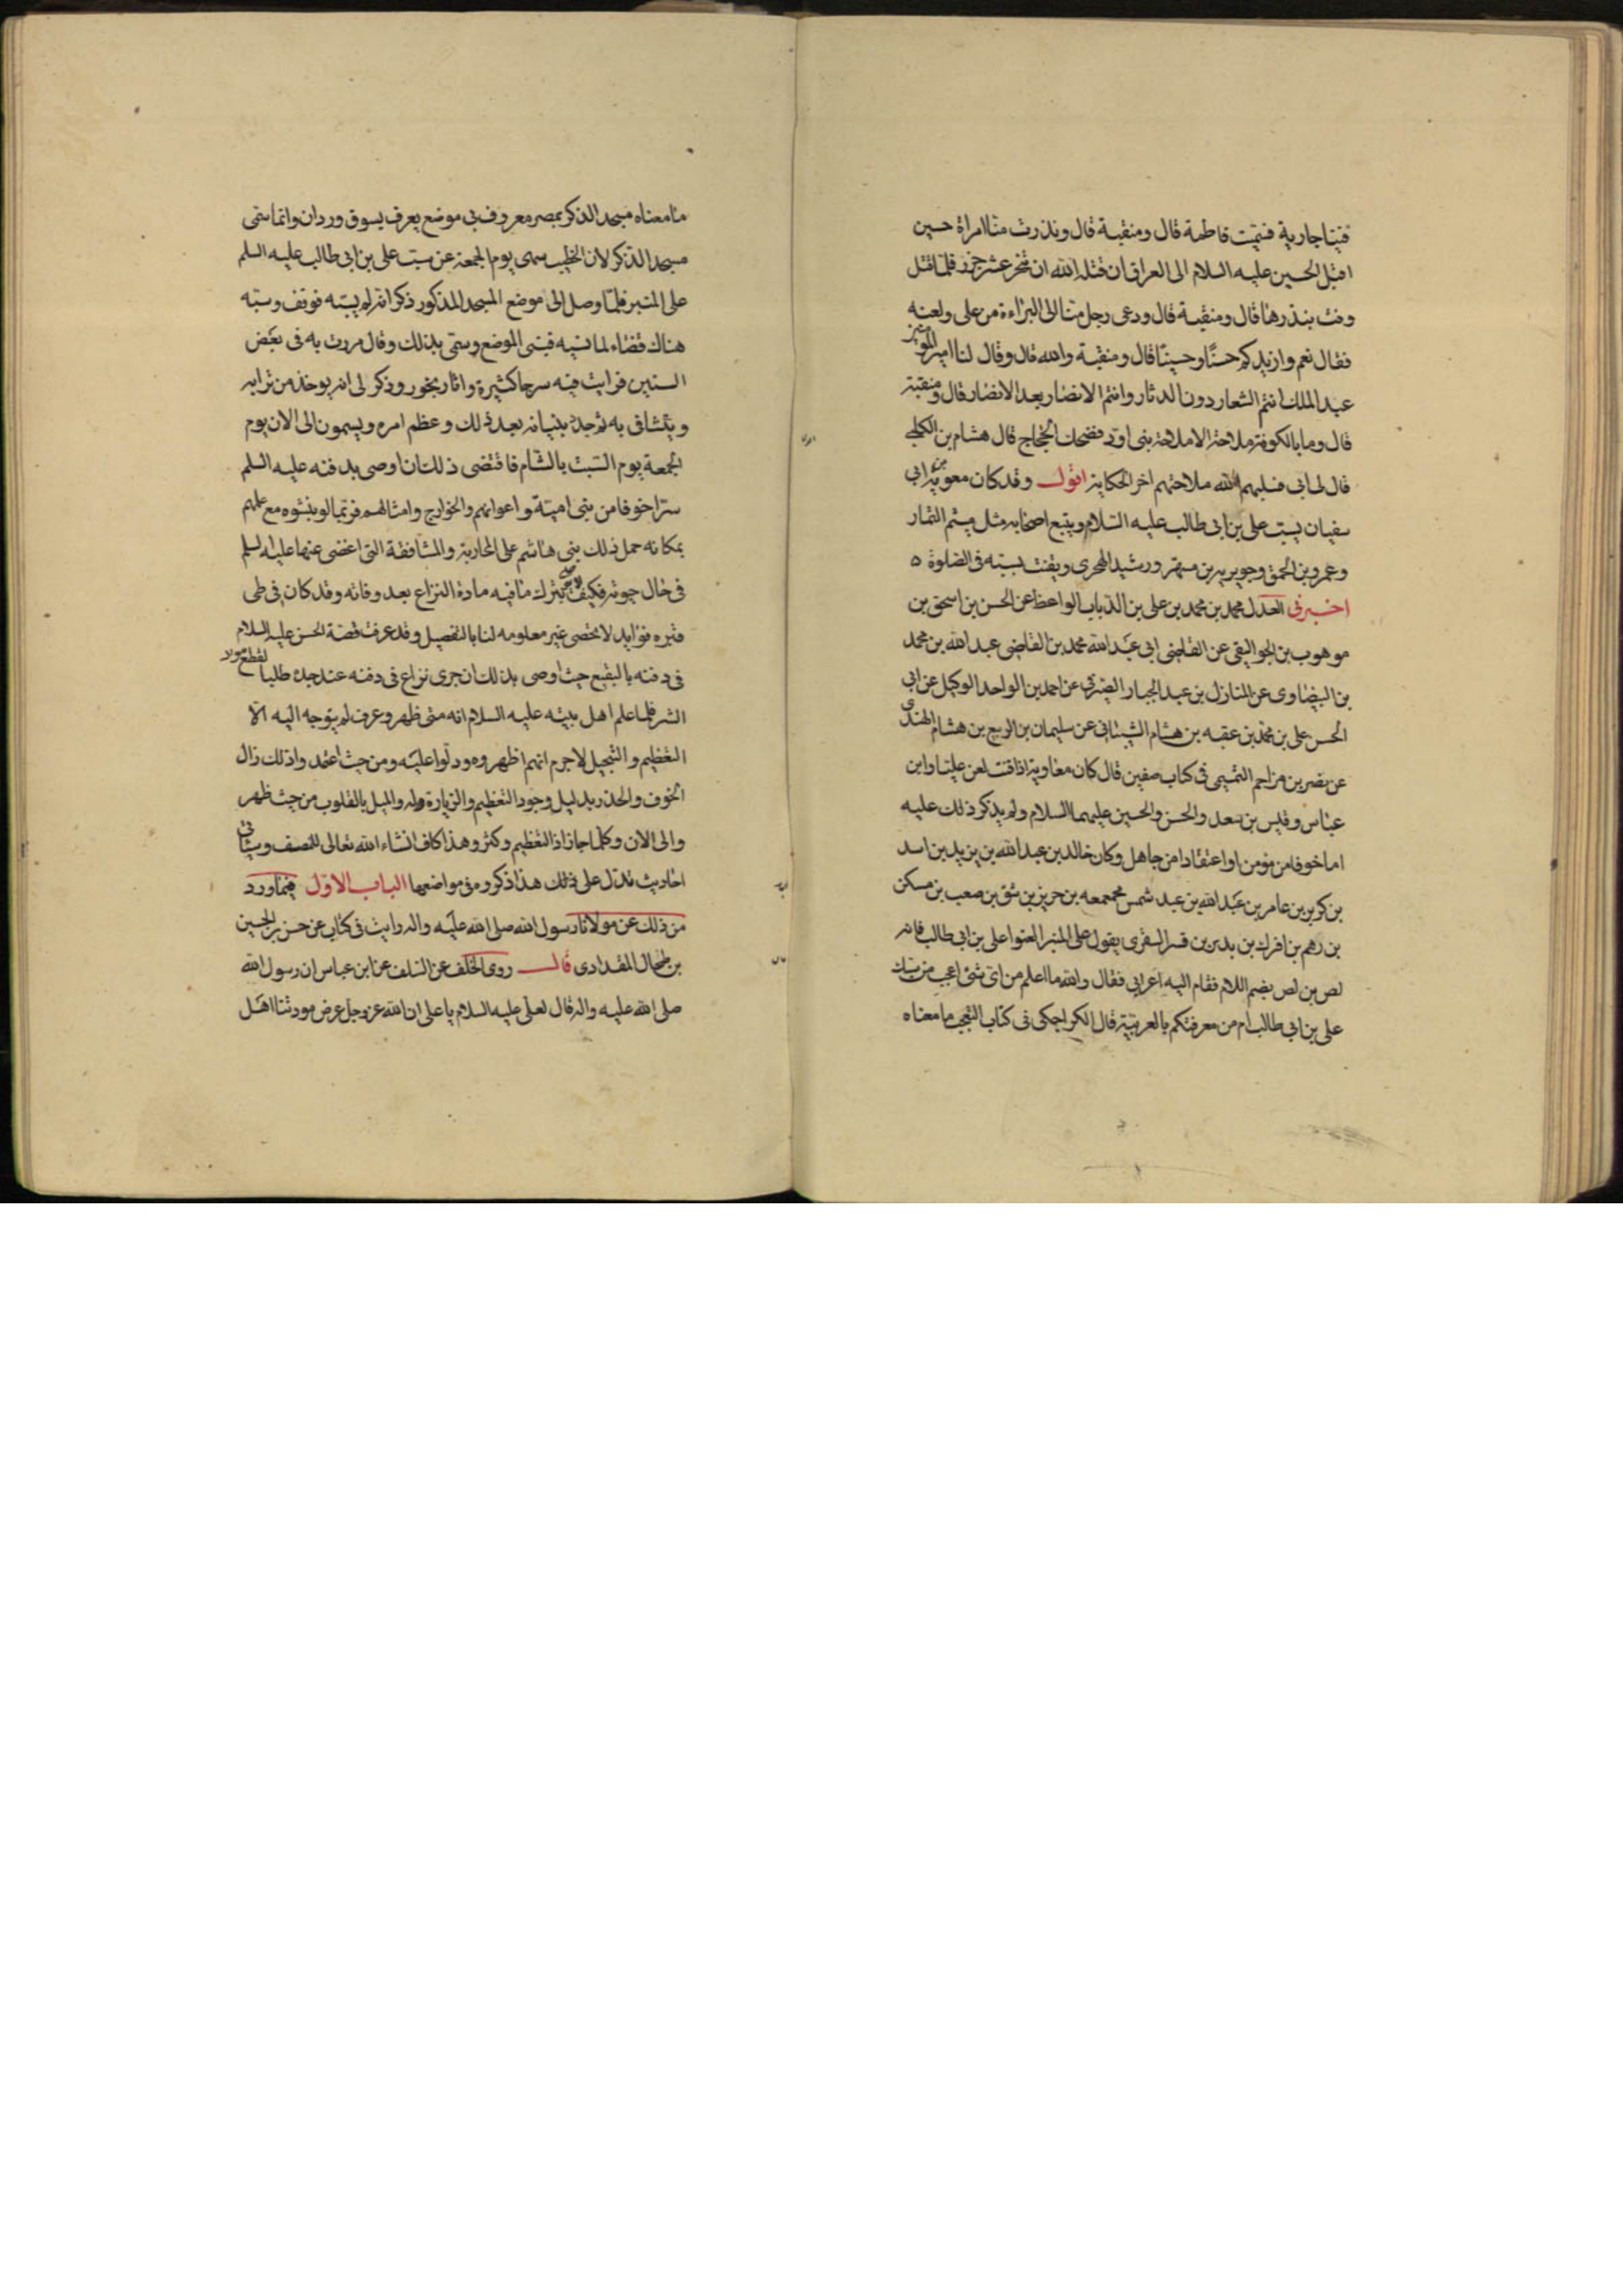 فينا جارية فتميت فاطمة قال ومنقبة قال ونذرت منا امراة حين
اقبل الحسين عليه السلام الى العراق ان قتله الله ان تنحر عشر جزر فلما قتل
وفت بنذرها قال ومنقبة قال ودعى رجل منا الى البراءة من على ولعنه
فقال نعم وازيدكم حسنًا وحسينًا قال ومنقبة والله قال وقال لنا امير المومنين
عبد الملك انتم الشعار دون الدثار وانتم الانصار بعد الانصار قال ومنقبة
قال وما بالكوفة ملاحة الا ملاحة بنى اود فضحك الحجاج قال هشام بن الكلبي
قال لى ابى فسلبهم الله ملاحتهم اخر الحكاية اقول وقد كان معوية بن ابى
سفيان يسب على بن ابى طالب عليه السلام ويتبع اصحابه مثل ميثم التمار
وعمرو بن الحمق وجويرية بن مسهر ورشيد الهجرى ويقنت بسبه فى الصلوة ه
اخبرنى العدل محمد بن محمد بن على بن الذباب الواعظ عن الحسن بن اسحق بن
موهوب بن الجواليقى عن القاضى ابى عبد الله محمد بن القاضى عبد الله بن محمد
بن البيضاوى عن المنازل بن عبد الجبار الصيرفى عن احمد بن الواحد الوكيل عن ابى
الحسن على بن محمد بن عقبه بن هشام الشيبانى عن سليمان بن الربيع بن هشام الهندى
عن نصر بن مزاحم التميمى فى كتاب صفين قال كان معاوية اذا قنت لعن عليا وابن
عباس وقيس بن سعد والحسن والحسين عليهما السلام ولم يذكر ذلك عليه
اما خوفا من مومن او اعتقادا من جاهل وكان خالد بن عبد الله بن يزيد بن اسد
بن كريز بن عامر بن عبد الله بن عبد شمس بن حريز بن شق بن صعب بن مسكن
بن رهم بن افرك بن بدير بن قسر السفرى يقول على المنبر العنوا على بن ابى طالب فانه
لص بن لص بضم اللام فقام اليه اعرابى فقال والله ما اعلم من اى شئ اعجب من سبك
على بن ابى طالب ام من معرفتكم بالعربية قال الكراجكى فى كتاب التعجب ما معناه
ما معناه مسجد الذكر بمصر معروف فى موضع يعرف بسوق وردان وانما سمى
مسجد الذكر لان الخطيب سهى يوم الجمعة عن سب على بن ابى طالب عليه السلم
على المنبر فلما وصل الى موضع المسجد المذكور ذكر انه لم يسبه فوقف وسبه
هناك قضاء لما نسيه فبنى الموضع وسمى بذلك وقال مررت به فى بعض
السنين فرايت فيه سرجا كثيرة واثار بخور وذكر لى انه يوخذ من ترابه
ويتشافى به ثم جدد بنيانه بعد ذلك وعظم امره ويسمون الى الان يوم
الجمعة يوم السبت بالشام فاقتضى ذلك ان اوصى بدفنه عليه السلم
سرا خوفا من بنى امية واعوانهم والخوارج وامثالهم فربما لو نبشوه مع علمهم
بمكانه حمل ذلك بنى هاشم على المحاربة والمشاققة التى اغضى عنها عليه السلم
فى حال حيوته فكيف لا يوصى بترك ما فيه مادة النزاع بعد وفاته وقد كان فى طى
قبره فوايد لا تحصى غير معلومه لنا بالتفصيل وقد عرفت قصة الحسن عليه السلام
فى دفنه بالبقيع حيث اوصى بذلك ان جرى نزاع فى دفنه عند جده طلبا لقطع مواد
الشر فلما علم اهل بيته عليه السلام انه متى ظهر وعرف لم يتوجه اليه الا
التعظيم والتبجيل لاجرم انهم اظهروه ودلوا عليه ومن حيث اعتمد واذلك زال
الخوف والحذر بدليل وجود التعظيم والزيارة وله والميل بالقلوب من حيث ظهر
والى الان وكلما جاز ازداد التعظيم وكثر وهذا كاف انشاء الله تعالى للمنصف وسياتى
احاديث تدل على ذلك هذا ذكره فى مواضعها الباب الاول فيما ورد
من ذلك عن مولانا رسول الله صلى الله عليه واله رايت فى كتاب عن حسن بن الحسين
بن طحال المقدادى قال روى الخلف عن السلف عن ابن عباس ان رسول الله
صلى الله عليه واله قال لعلى عليه السلام يا على ان الله عز وجل عرض مودتنا اهل